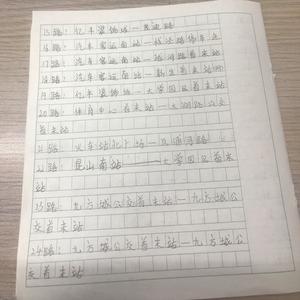 15路：亿丰装饰城—
16路：汽车客运南站—
17路：汽车客运南站—首末站
18路：汽车客运南站—
19路：亿丰装饰城—大学园区首末站
20路：体育中心首末站—大湖路公交
首末站
21路：火车站北广场—
22路：昆山南站——大学园区首末
站
23路：九方城公交首末站—九方城公
交首末站
24路：九方城公交首末站—九方城公
交首末站